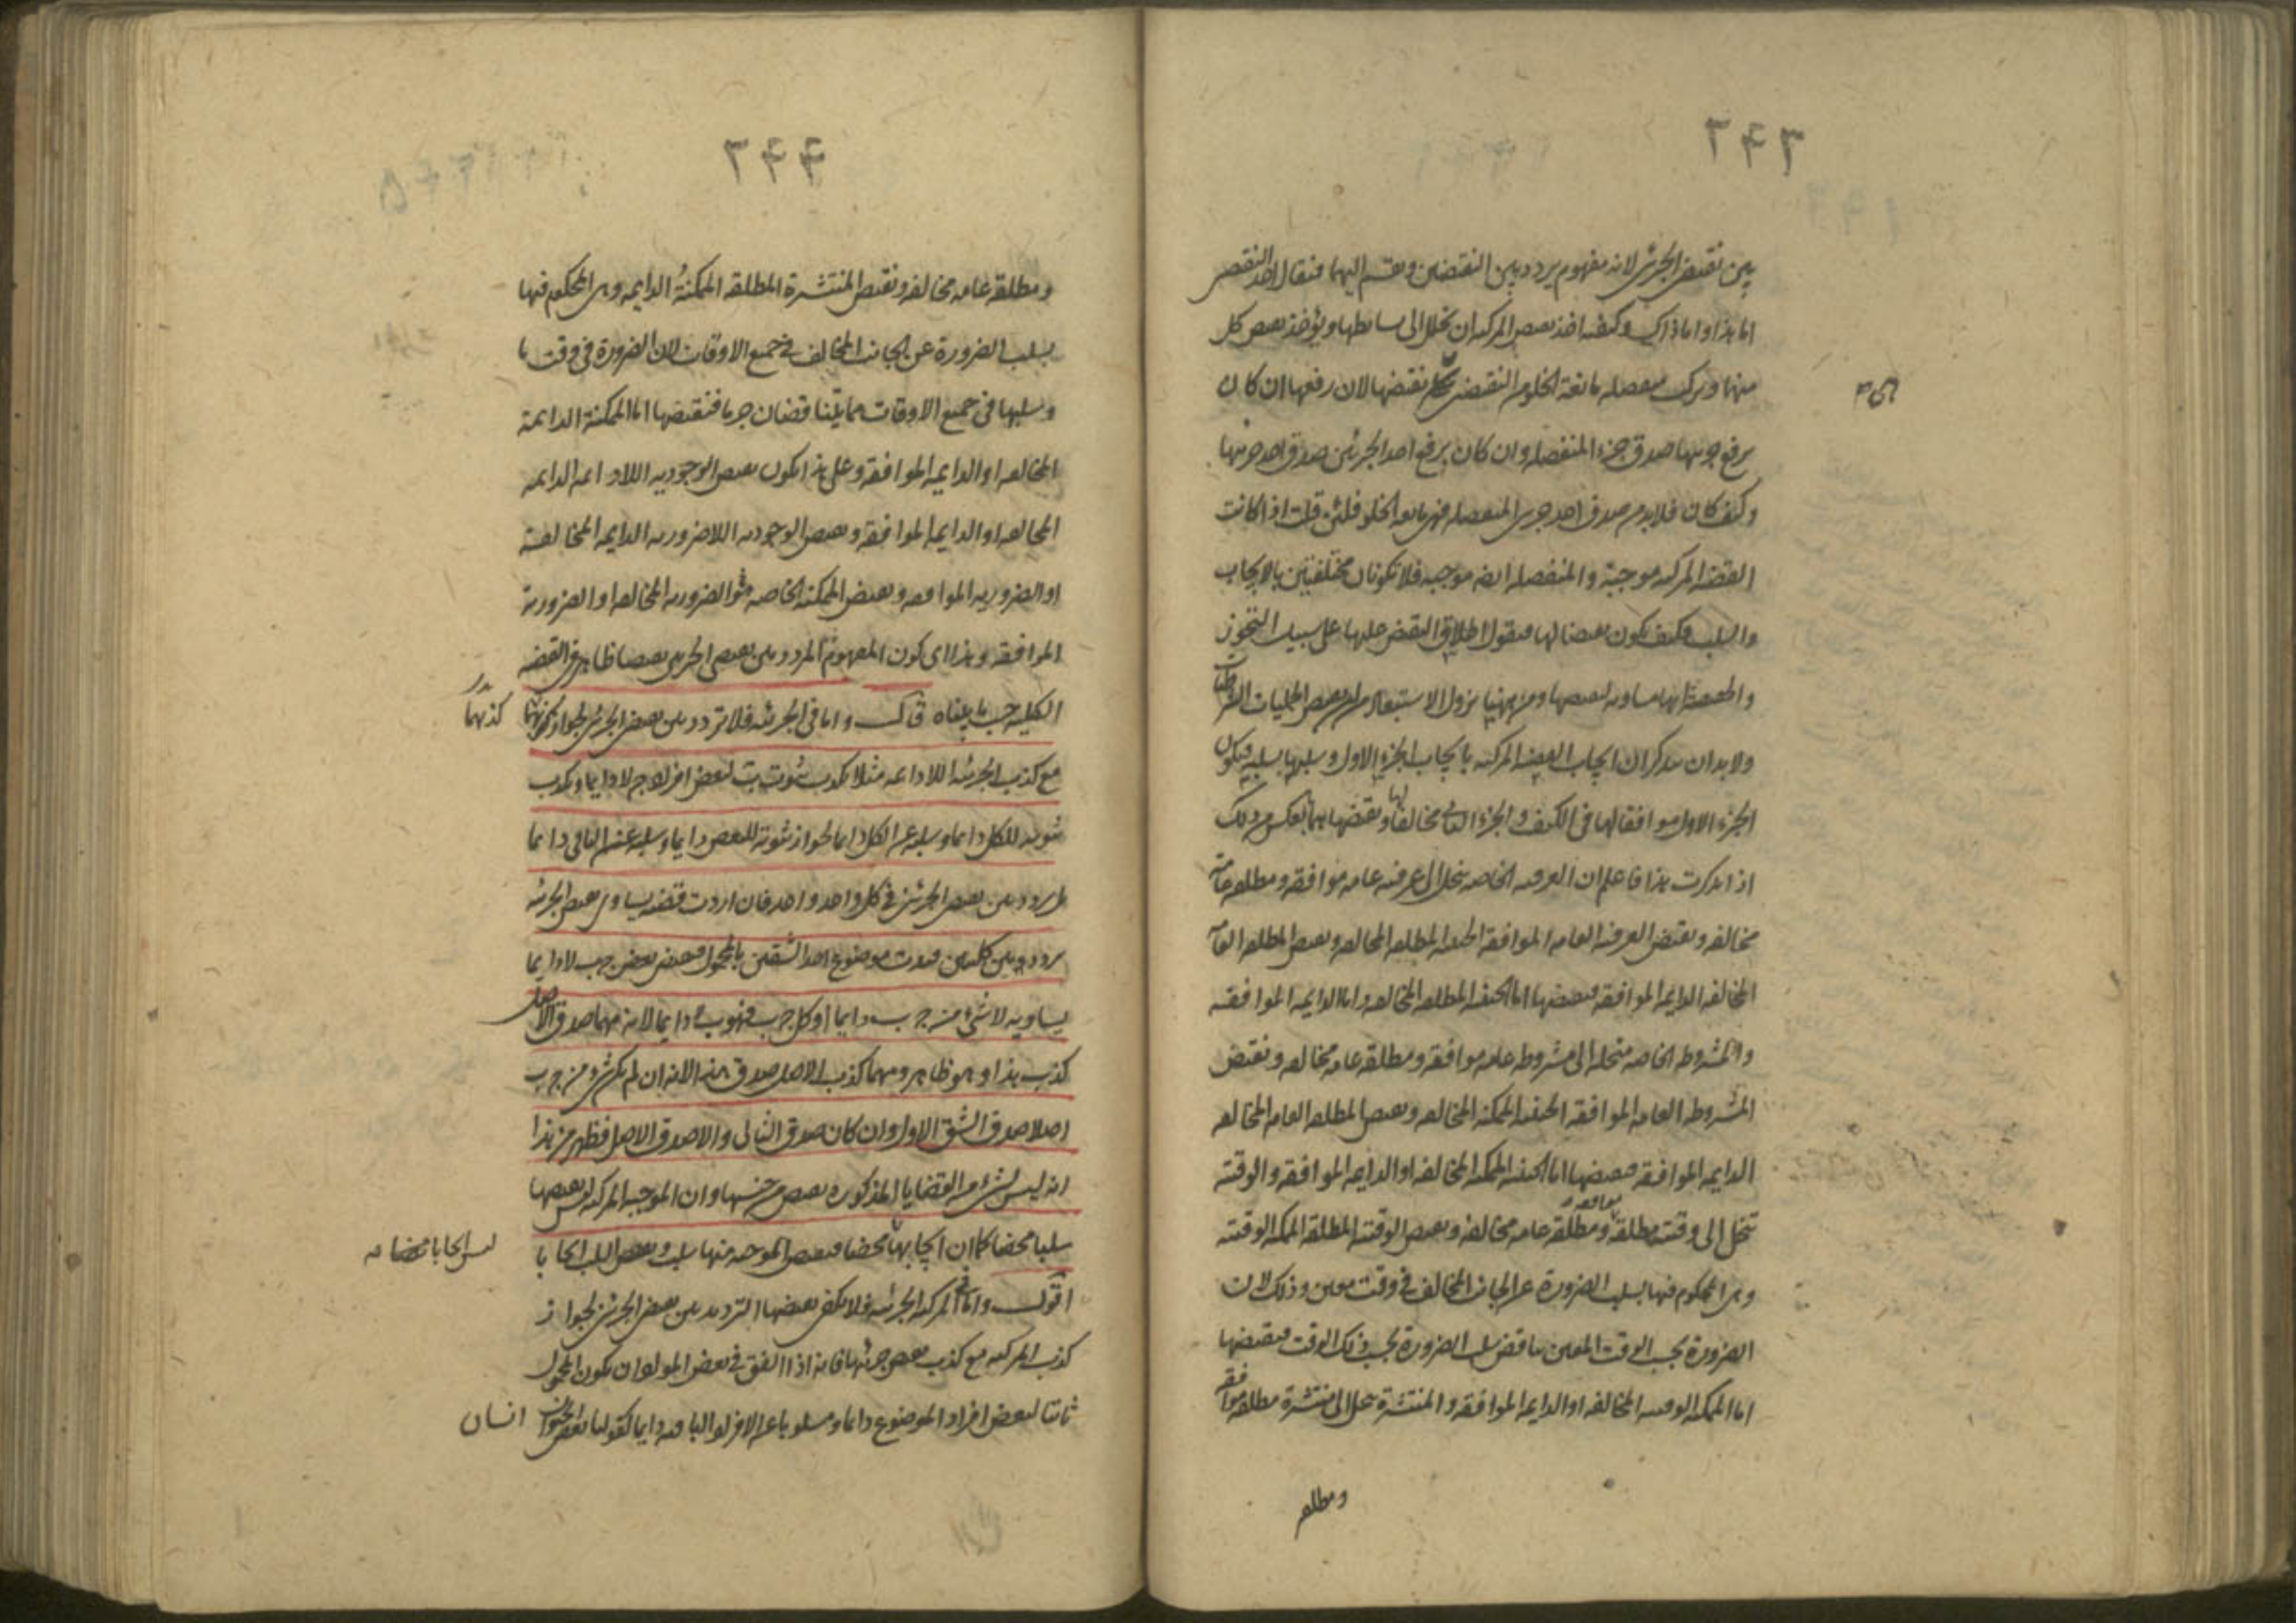 ٢٤٣
بين نقيض الجزئين لانه مفهوم يردد بين النقيضين ويقسم اليهما فيقال احد النقيضين
اما هذا واما ذاك وكيفية اخذ نقيض المركبة ان تحلل الى بسائطها ويؤخذ نقيض كل
منها وتركب منفصلة مانعة الخلو من النقيضين نقيضها لان رفعها ان كان
برفع جزئيها صدق جزء المنفصلة وان كان برفع احد الجزئين صدق احد جزئيها
وكيف كان فلابد من صدق احد جزئي المنفصلة فهي مانعة الخلو فلئن قلت اذا كانت
القضية المركبة موجبة والمنفصلة ايضا موجبة فلا تكونان مختلفتين بالايجاب
والسلب فكيف يكون نقيضا لها فنقول اطلاق النقيض عليها على سبيل التجوز
والحقيقة انها مساوية لنقيضها ومن ههنا يزول الاستبعاد من نقيض الحمليات الشرطيات
ولابد ان تتذكر ان ايجاب القضية المركبة بايجاب الجزء الاول وسلبها بسلبه فيكون
الجزء الاول موافقا لها في الكيف والجزء الثاني مخالفا لها ونقيضهما بالعكس من ذلك
اذا تذكرت هذا فاعلم ان العرفية الخاصة تنحل الى عرفية عامة موافقة ومطلقة عامة
مخالفة ونقيض العرفية العامة الموافقة الحينية المطلقة المخالفة ونقيض المطلقة العامة
المخالفة الدايمة الموافقة فنقيضها اما الحينية المطلقة المخالفة واما الدايمة الموافقة
والمشروطة الخاصة منحلة الى مشروطة عامة موافقة ومطلقة عامة مخالفة ونقيض
المشروطة العامة الموافقة الحينية الممكنة المخالفة ونقيض المطلقة العامة المخالفة
الدايمة الموافقة فنقيضها اما الحينية الممكنة المخالفة او الدايمة الموافقة والوقتية
تنحل الى وقتية مطلقة موافقة ومطلقة عامة مخالفة ونقيض الوقتية المطلقة الممكنة الوقتية
وهي المحكوم فيها بسلب الضرورة عن الجانب المخالف في وقت معين وذلك لان
الضرورة بحسب الوقت المعين يناقض سلب الضرورة بحسب ذلك الوقت فنقيضها
اما الممكنة الوقتية المخالفة او الدايمة الموافقة والمنتشرة تنحل الى منتشرة مطلقة موافقة
ومطلقة
٢٤٤
ومطلقة عامة مخالفة ونقيض المنتشرة المطلقة الممكنة الدايمة وهي المحكوم فيها
بسلب الضرورة عن الجانب المخالف في جميع الاوقات لان الضرورة في وقت ما
وسلبها في جميع الاوقات مما يتناقضان جزما فنقيضها اما الممكنة الدايمة
المخالفة او الدايمة الموافقة وعلى هذا يكون نقيض الوجودية اللادايمة الدايمة
المخالفة او الدايمة الموافقة ونقيض الوجودية اللاضرورية الدايمة المخالفة
او الضرورية الموافقة ونقيض الممكنة الخاصة هو الضرورية المخالفة او الضرورية
الموافقة وهذا اى كون المفهوم المردد بين نقيضى الجزئين نقيضا ظاهر في القضية
الكلية حسب ما بيناه قال واما في الجزئية فلا تردد بين نقيض الجزئين لجواز كذبهما
كذبهما
مع كذب الجزئية اللادايمة مثلا يكذب ثبوت ب لبعض افراد ج لا دايما ويكذب
ثبوته للكل دايما وسلبه عن الكل دايما لجواز ثبوته للبعض دايما وسلبه عن الباقى دايما
بل يردد بين نقيض الجزئين في كل واحد واحد فان اردت قضية يساوى نقيض الجزئية
يردد بين كليتين قيدت موضوع احد الشقين بالمحمول فنقيض بعض ج ب لا دايما
يساويه لا شئ من ج ب دايما او كل ج ب فهو ب دايما لانه مهما صدق الاصل
كذب هذا وهو ظاهر ومهما كذب الاصل صدق هذا لانه ان لم يكن شئ من ج ب
اصلا صدق الشق الاول وان كان صدق الثانى والا صدق الاصل فظهر من هذا
انه ليس لشئ من القضايا المذكورة نقيض من جنسها وان الموجبة المركبة ليس نقيضها
سلبا محضا كما ان ايجابها محضا فنقيض الموجبة منها سلب ونقيض السلب ايجابا
ليس ايجابا محضا صه
اقول واما في المركبة الجزئية فلا يكفي نقيضها الترديد بين نقيض الجزئين لجواز
كذب المركبة مع كذب نقيض جزئيها فانه اذا اتفق في بعض المواد ان يكون المحمول
ثابتا لبعض افراد الموضوع دايما ومسلوبا عن الافراد الباقية دايما كقولنا بعض الحيوان انسان